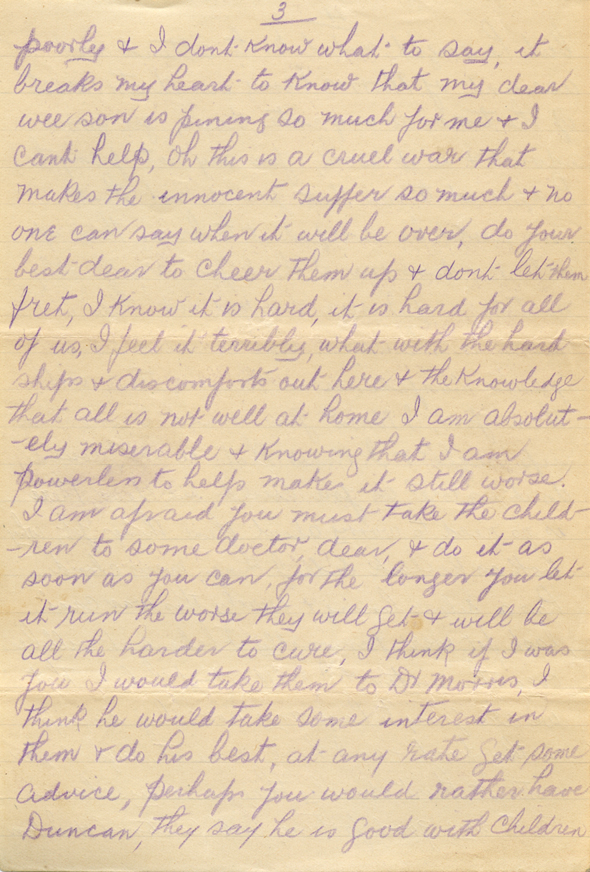 3
poorly & I dont know what to say, it
breaks my heart to know that my dear
wee son is pining so much for me & I
cant help, Oh this is a cruel war that
makes the innocent suffer so much & no
one can say when it will be over, do your
best dear to cheer them up & dont let them
fret, I know it is hard, it is hard for all
of us, I feel it terribly, what with the hard
ships & discomforts out here & the knowledge
that all is not well at home I am absolut-
-ely miserable & knowing that I am
powerless to help makes it still worse.
I am afraid you must take the child-
-ren to some doctor, dear, & do it as
soon as you can, for the longer you let
it run the worse they will get & will be
all the harder to cure, I think if I was
you I would take them to Dr Morris, I
think he would take some interest in
them & do his best, at any rate get some
advice, perhaps you would rather have
Duncan, they say he is good with children